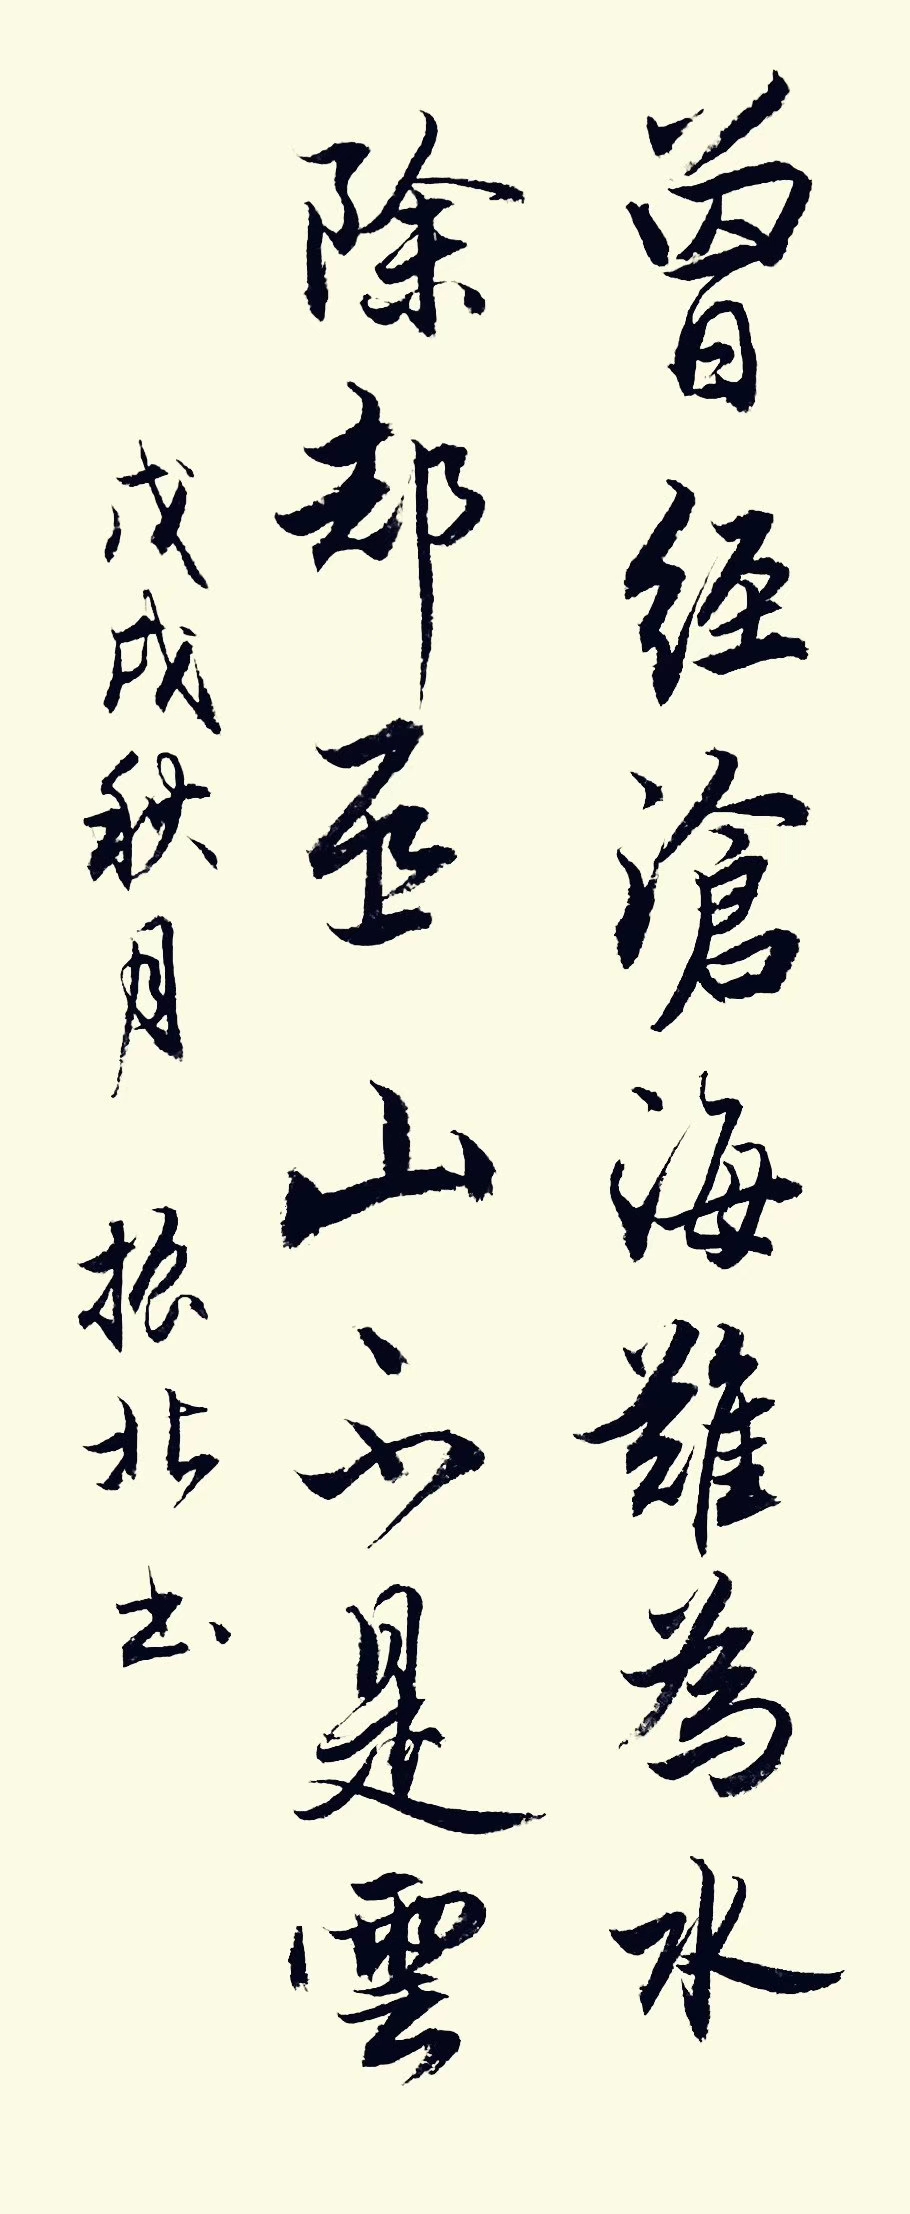 曾经滄海難為水
除却巫山不是雲
戊戌秋月 振北书